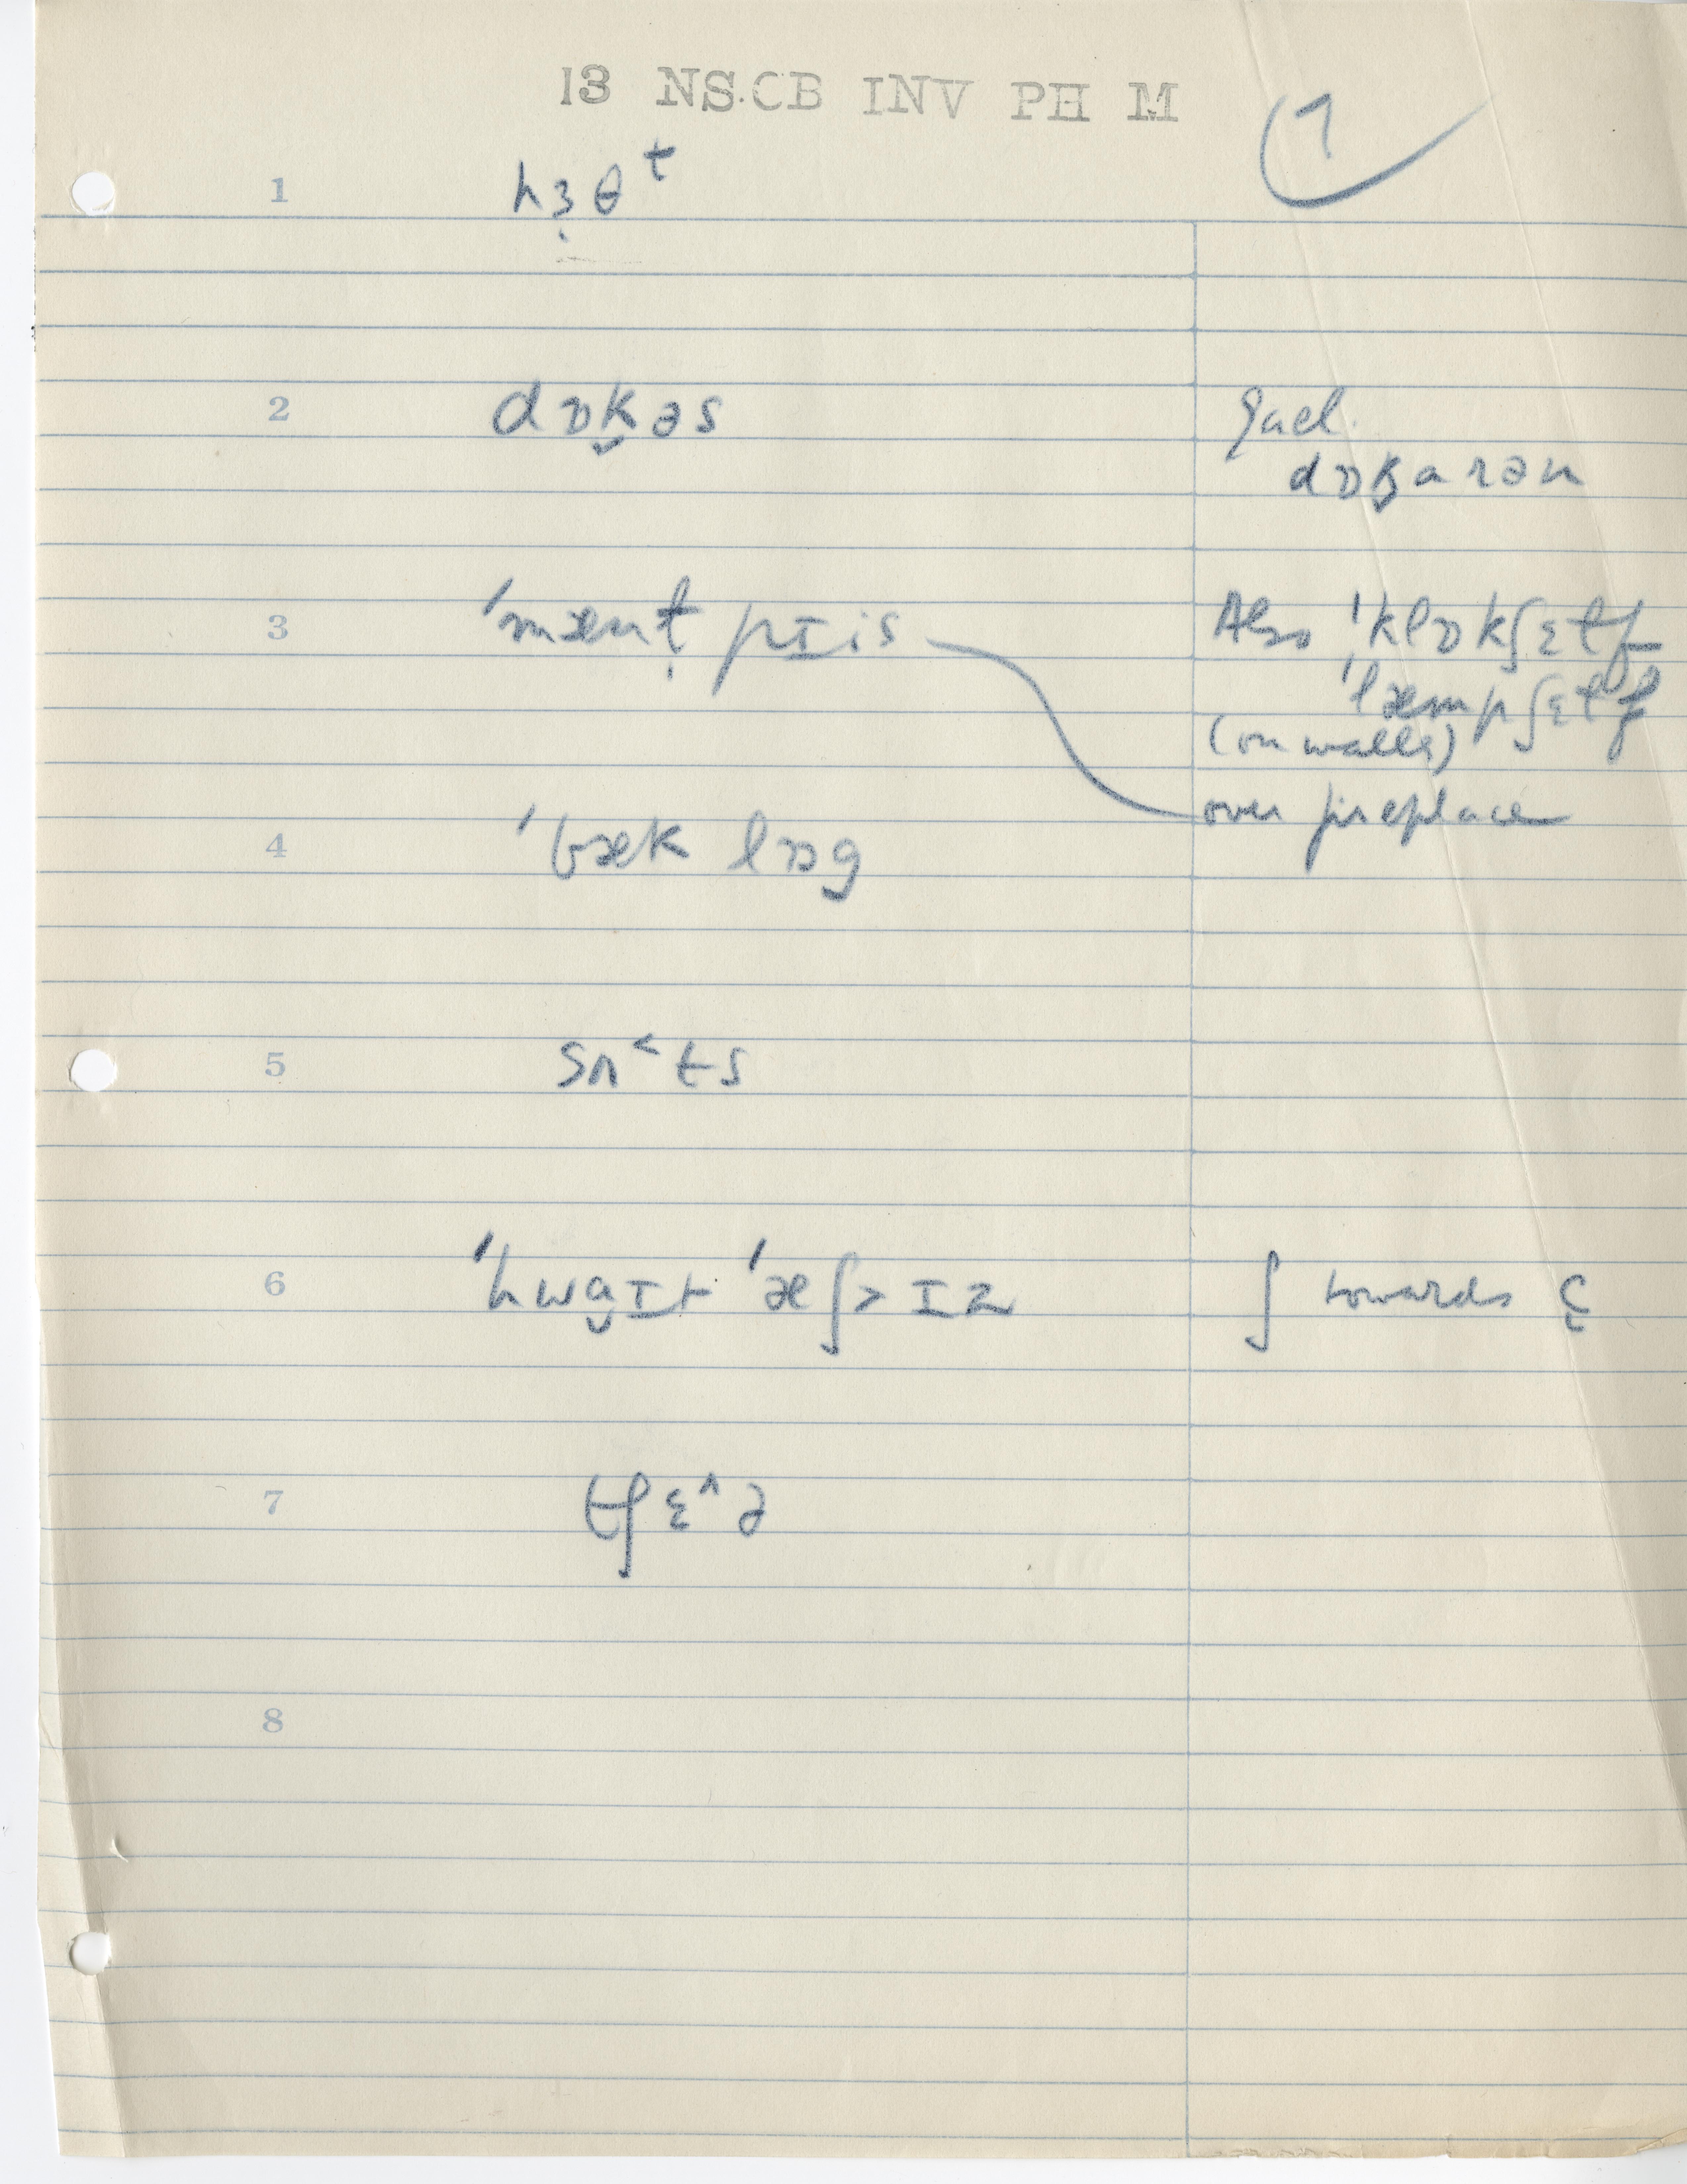 13 NS.CB INV PH M
7
1 hɜ̣θᵗ
2 dɒk̬əs
Gael.
dɒk̬arən
3 'mænt̩ pɪis
Also 'klɒkʃɛlf
'læmpʃɛlf
(on walls)
over fireplace
4 'bæk lɒg
5 sʌ˂ts
6 'hwa̬ɪt 'æʃ˃ɪz
ʃ towards ç
7 tʃɛ˄ə
8